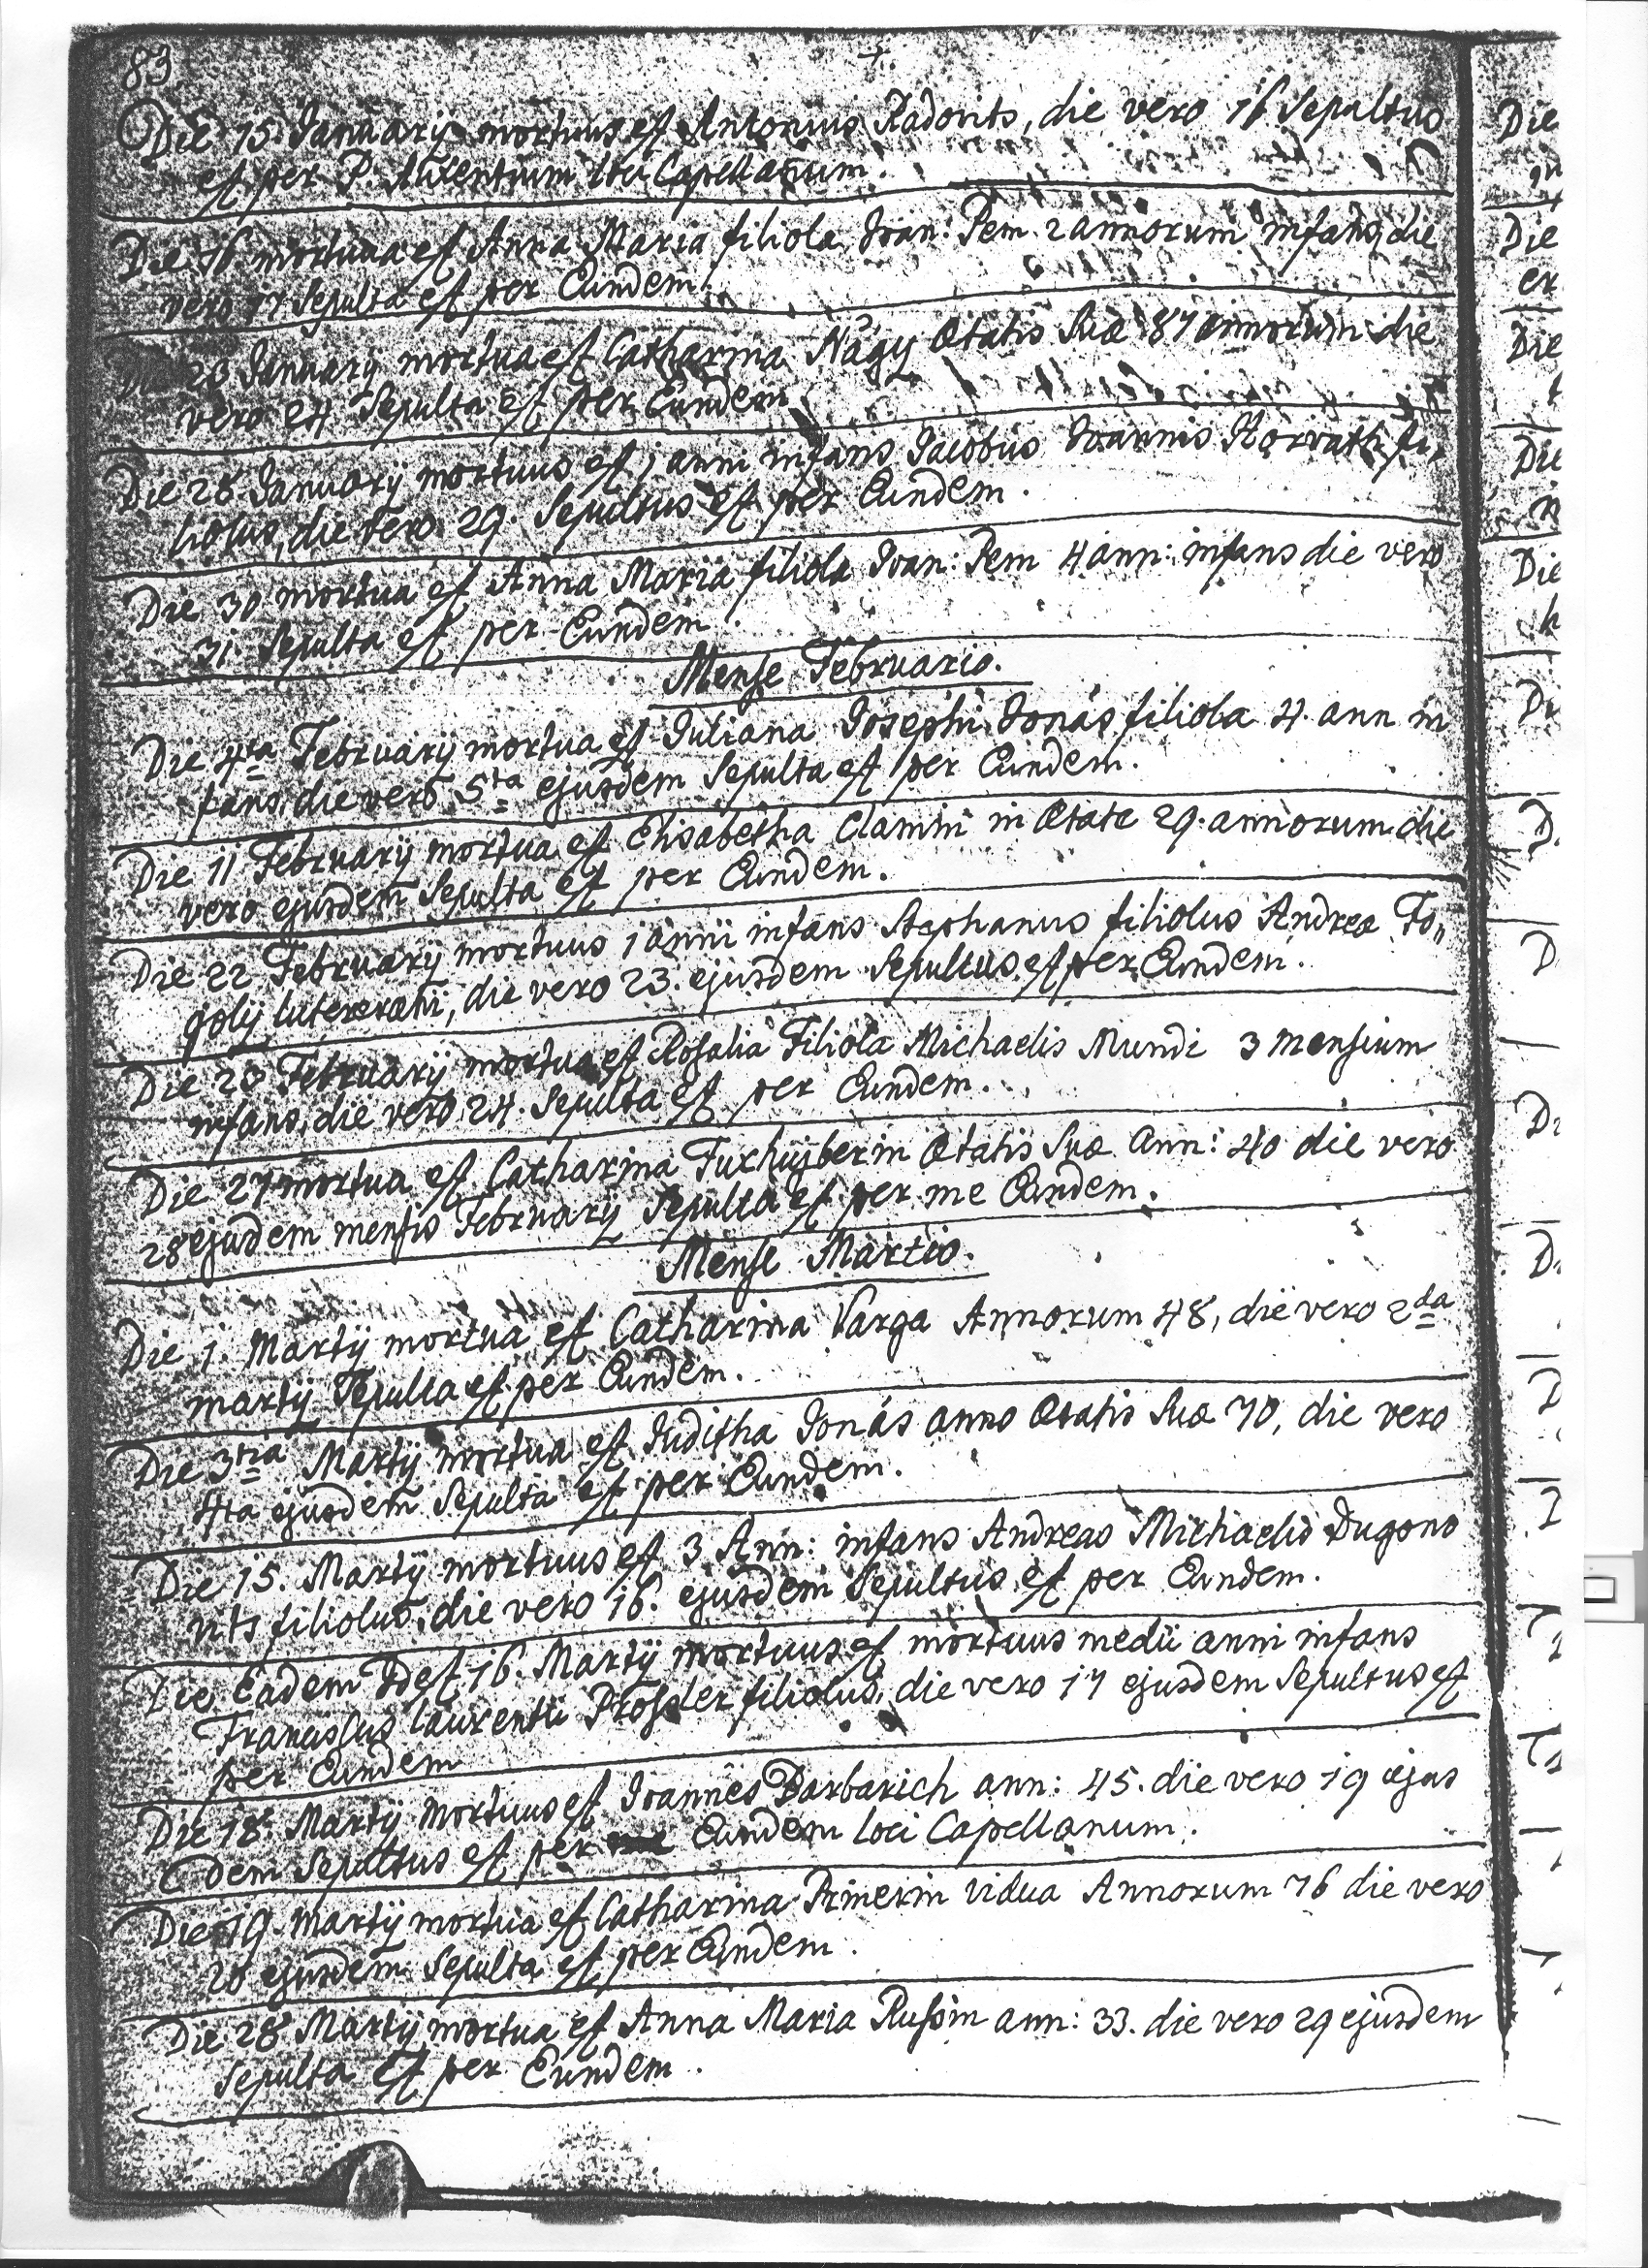 83
Die 15. Januarij mortuus est Antonius Radovits, die vero 16 Sepultus
est per P. Auxentium loci Capellanum.
Die 16 mortuua est Anna Maria filiola Ioan: Pem 2 annorum infans, die
vero 17 Sepulta est per Eundem.
Die 23 Januarij mortua est Catharina Nagy Ætatis Suæ 87 annorum die
vero 24 Sepulta est per Eundem
Die 28 Januarij mortuus est 1 anni infans Jacobus Ioannis Horvath fi„
liolus, die vero 29. Sepultus est per Eundem.
Die 30 mortua est Anna Maria filiola Ioan: Pem 4 ann: infans die vero
31 Sepulta est per Eundem.
Mense Februario.
Die 4ta Februarij mortua est Juliana Josephi Jonás filiola 4. ann in
fans, die vero 5ta ejusdem Sepulta est per Eundem.
Die 11 Februarij mortua est Elisabetha Clamin in Ætate 29. annorum die
vero ejusdem Sepulta est per Eundem.
Die 22 Februarij mortuus 1 anni infans Stephanus filiolus Andreæ Fo„
golij die vero 23. ejusdem Sepultus est per Eundem.
Die 23 Februarij mortua est Rosalia Filiola Michaelis Mundi 3 mensium
infans, die vero 24. Sepulta est per Eundem.
Die 27 mortua est Catharina Fuxhujberin Ætatis Suæ Ann: 40 die vero
28 ejusdem mensis Februarij Sepulta est per me Eundem.
Mense Martio.
Die 1. Martij mortua est Catharina Varga Annorum 48, die vero 2da
martij Sepulta est per Eundem.
Die 3tia Martij mortua est Juditha Jonás anno Ætatis Suæ 70, die vero
4ta ejusdem Sepulta est per Eundem.
Die 15. Martij mortuus est 3 Ann: infans Andreas Michaelis Dugono
vits filiolus, die vero 16. ejusdem Sepultus est per Eundem.
Die Eadem Idest 16. Martij mortuus est mortuus medii anni infans
Franciscus Laurentii Prosder filiolus, die vero 17 ejusdem Sepultus est
per Eundem
Die 18. Martij mortuus est Ioannes Barbarich ann: 45. die vero 19 ejus
dem Sepultus est per Eundem loci Capellanum.
Die 19. Martij mortua est Catharina Primerin vidua Annorum 76 die vero
20 ejusdem Sepulta est per Eundem.
Die 28 Martij mortua est Anna Maria Russin ann: 33. die vero 29 ejusdem
Sepulta est per Eundem.
Die
Die
er
Die
Die
Die